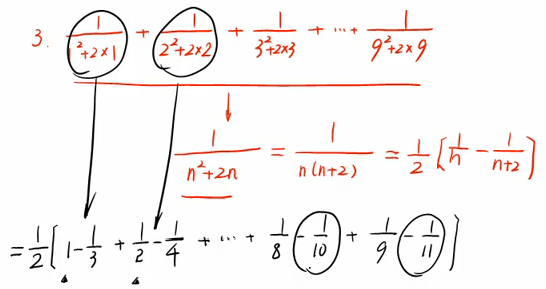 3. 1/(1²+2×1) + 1/(2²+2×2) + 1/(3²+2×3) + ... + 1/(9²+2×9)
1/(n²+2n) = 1/(n(n+2)) = 1/2 [1/n - 1/(n+2)]
= 1/2 [1 - 1/3 + 1/2 - 1/4 + ... + 1/8 - 1/10 + 1/9 - 1/11]